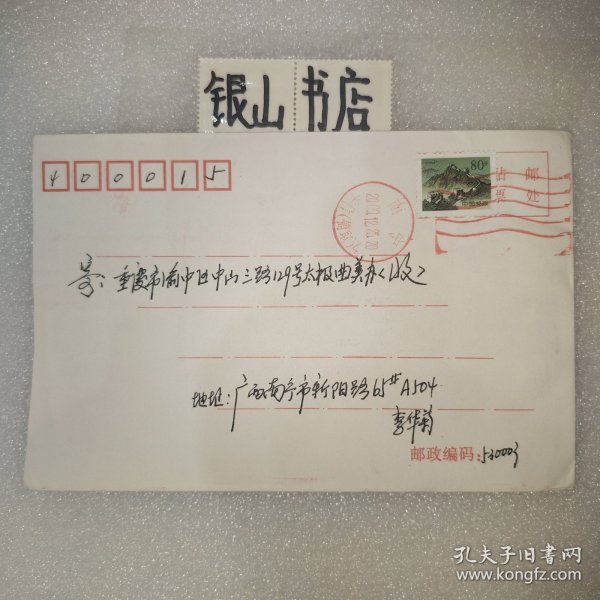 银山书店
400015
80分
贴邮票处
南宁
寄: 重庆市渝中区中山三路129号太极曲美办(收)
地址: 广西南宁市新阳路65# A504
李华菊
邮政编码: 530003
孔夫子旧书网
www.kongfz.com